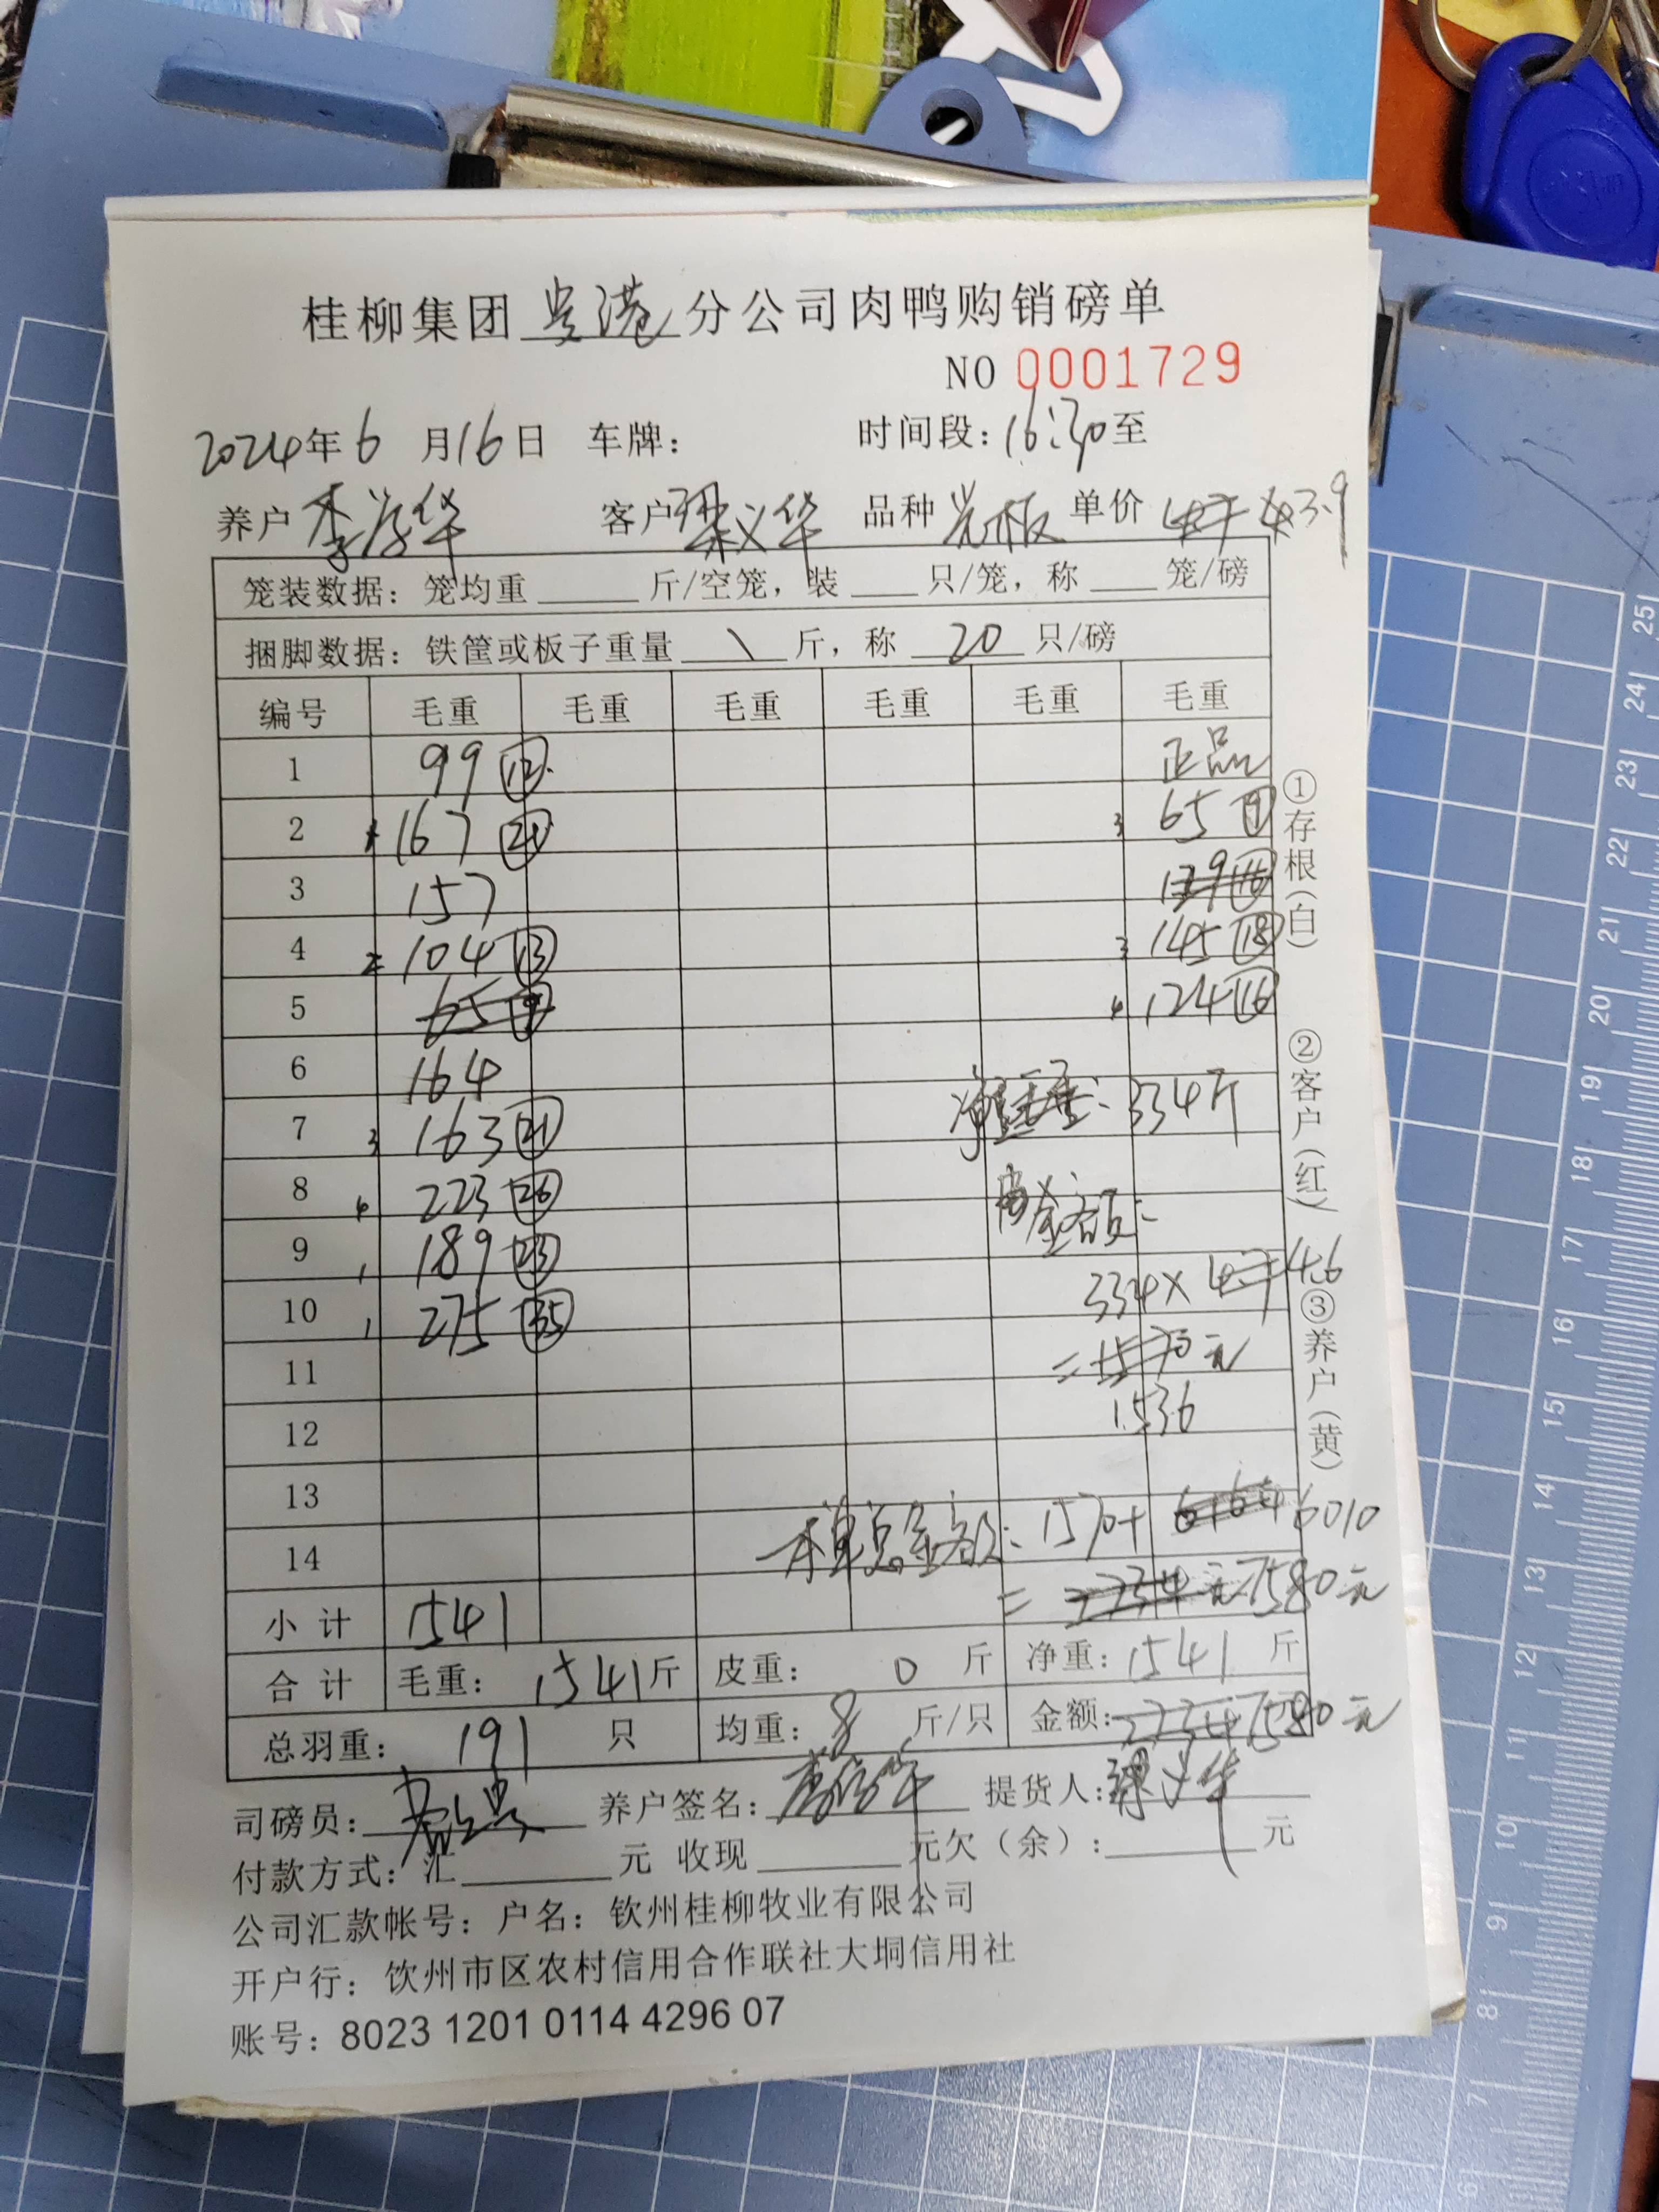 桂柳集团贵港分公司肉鸭购销磅单
NO 0001729
2024年6月16日 车牌: 时间段:16:30至
养户 客户梁义华 品种光板 单价 3.9
笼装数据: 笼均重 斤/空笼, 装 只/笼, 称 笼/磅
捆脚数据: 铁筐或板子重量 \ 斤, 称 20 只/磅
编号 毛重 毛重 毛重 毛重 毛重 毛重
1 99 (12) 正品
2 167 (21) 3 65 (9)
3 157 139 (16)
4 2 104 (13) 3 145 (18)
5 65 (9) 4 124 (16)
6 164
7 3 163 (21) 净重: 334斤
8 4 223 (26) 金额:
9 1 189 (23) 334× 4.6
10 1 275 (35) = 1570元
11 1536
12
13
14 本单总金额: 1570+ 6164 6010
= 7734元 7580元
小计 1541
合计 毛重: 1541斤 皮重: 0 斤 净重: 1541 斤
总羽重: 191 只 均重: 8 斤/只 金额: 7734 7580元
司磅员: 养户签名: 提货人: 梁义华
付款方式: 汇 元 收现 元欠(余): 元
公司汇款帐号: 户名: 钦州桂柳牧业有限公司
开户行: 饮州市区农村信用合作联社大垌信用社
账号: 8023 1201 0114 4296 07
①存根(白) ②客户(红) ③养户(黄)
25
24
23
22
21
20
19
18
17
16
15
14
13
12
11
10
9
8
7
6